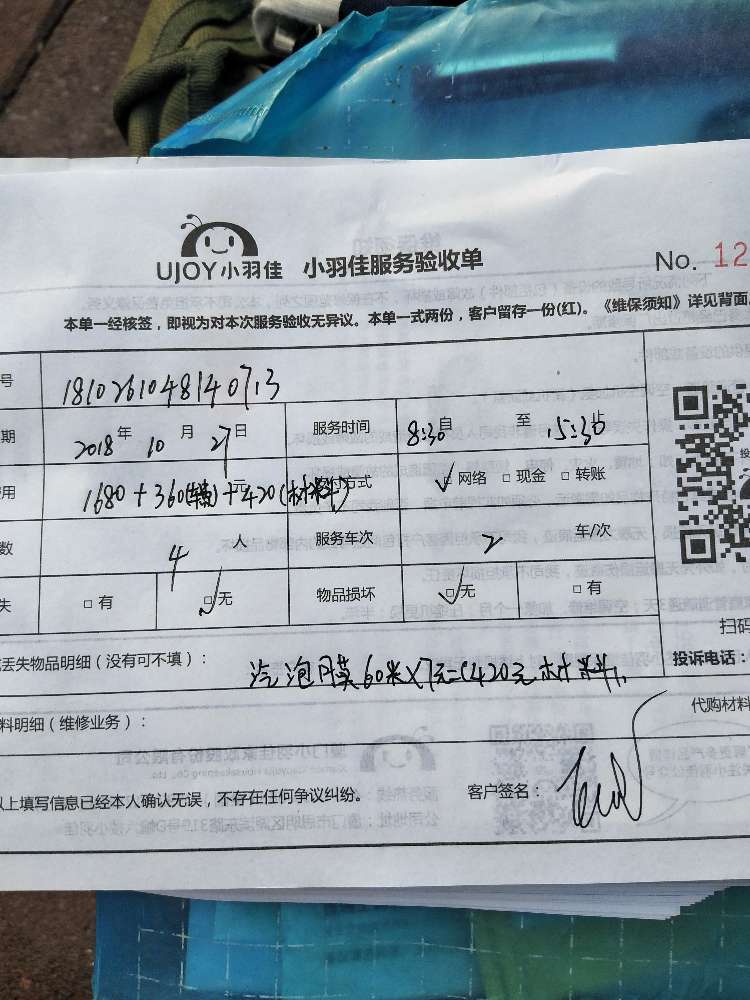 UJOY小羽佳 小羽佳服务验收单 No. 12
本单一经核签，即视为对本次服务验收无异议。本单一式两份，客户留存一份(红)。《维保须知》详见背面
号 1810261048140713
期 2018年10月27日 服务时间 8:30自 至 5:30止
费用 1680+360(辆)+420(材料)元 方式 ☑网络 □现金 □转账
数 4 人 服务车次 2 车/次
失 □有 ☑无 物品损坏 ☑无 □有
扫码
丢失物品明细（没有可不填）： 汽泡膜60米×7元=420元材料 投诉电话：
料明细（维修业务）： 代购材料
以上填写信息已经本人确认无误，不存在任何争议纠纷。 客户签名：